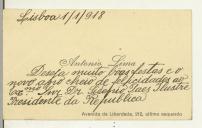 Lisboa 1/1/918
Antonio Lima
Deseja muito boas festas e o
novo ano cheio de felicidades ao
Exmo Snr. Dr. Sidonio Paes Illustre
Presidente da Republica
Avenida da Liberdade, 212, ultimo esquerdo